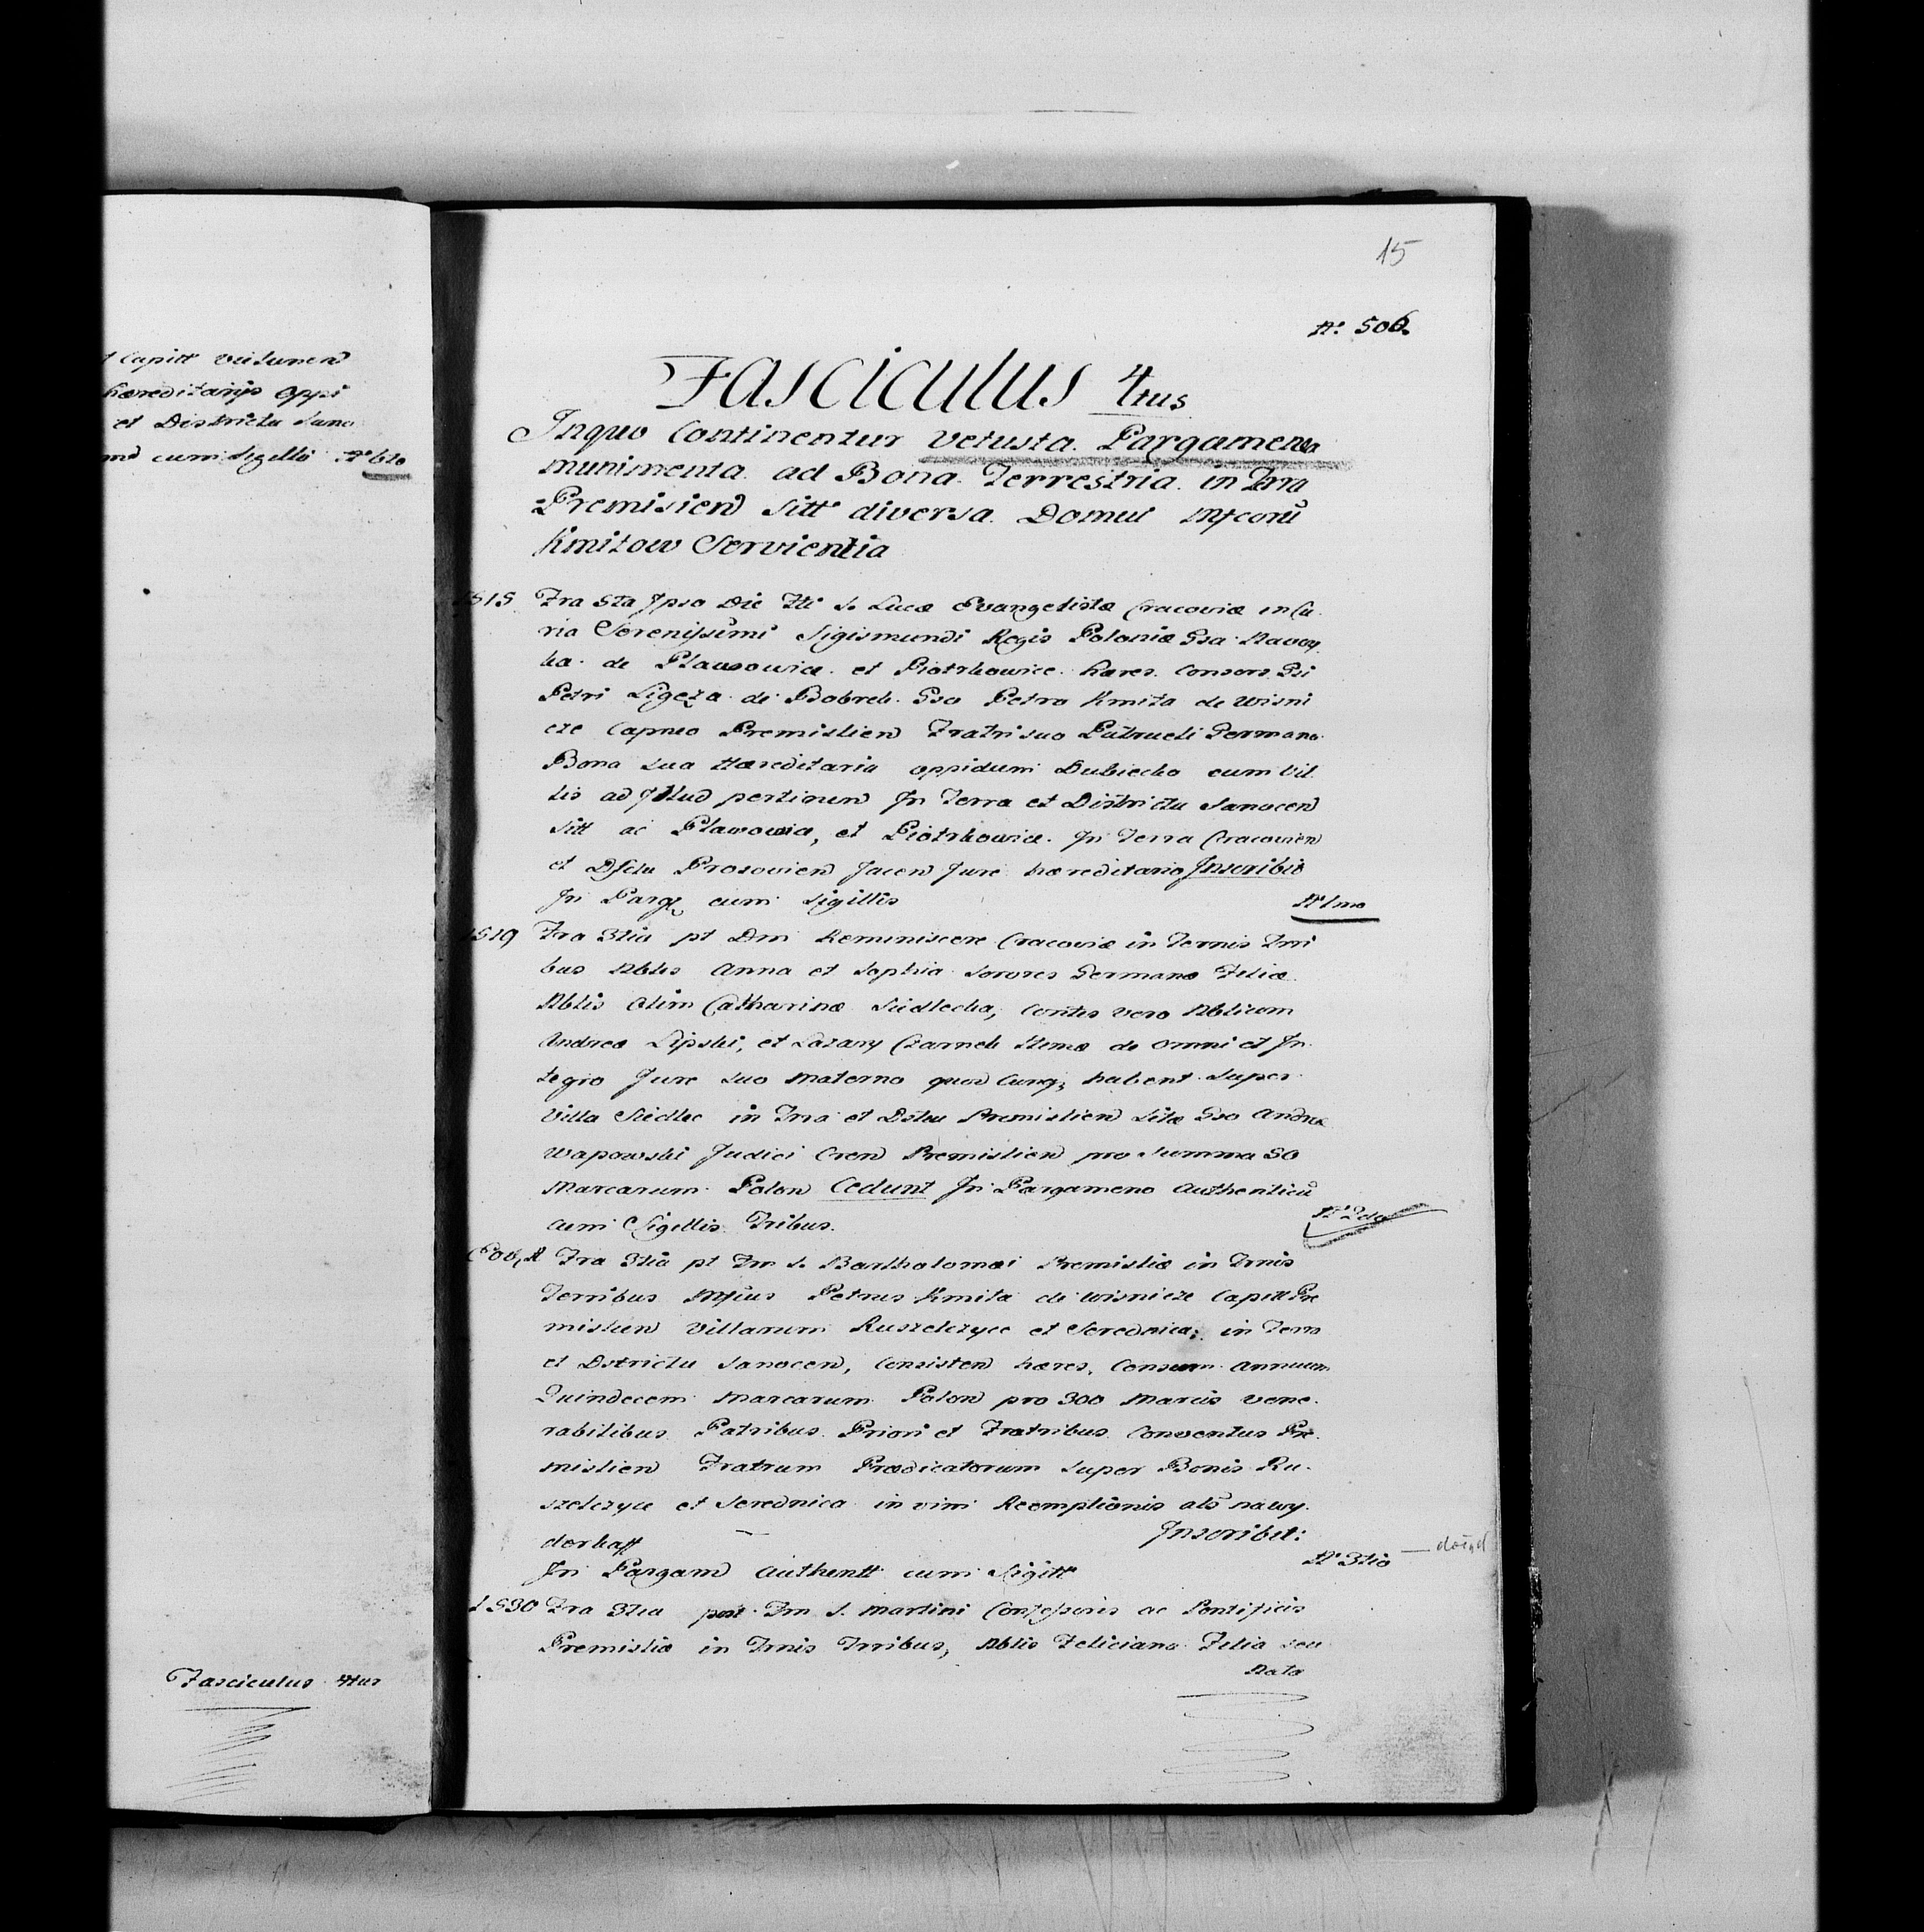 Capitt Vielunen
hæreditarijs Oppi
et Districtu Sano
cum Sigello Nº 6to
Fasciculus 4tus
15
Nº 506.
Fasciculus 4tus
Inquo Continentur vetusta Pargamenea
munimenta ad Bona Terrestria in Trra
Premislien Sitt diversa Domui Mfcorū
Kmitow Servientia
1515 Fra 5ta Ipso Die Fti S. Lucæ Evangelistæ Cracoviæ in Cu
ria Serenissimi Sigismundi Regis Poloniæ Gsa Nawoy
ka de Plawowice et Piotrkowice hæres Consors Gsi
Petri Ligęza de Bobrek Gso Petro Kmita de Wisni
cze Capneo Premislien Fratri suo Patrueli Germano
Bona sua Hæreditaria oppidum Dubiecko cum Vil
lis ad Illud pertinen In Terra et Districtu Sanocen
Sitt ac Plawowice, et Piotrkowice In Terra Cracovien
et Dsctu Prosovien Jacen Jure hæreditario Inscribit
In Parg cum Sigillis Nº 1mo
1519 Fra 3tia pt Dm Reminiscere Cracoviæ in Termis Trri
bus Nbles Anna et Sophia Sorores Germanæ Filiæ
Nblis Olim Catharinæ Siedlecka, Contes vero Nblium
Andreæ Lipski, et Lazary Czarnek Itemæ de Omni et In
tegro Jure suo Materno quod Cunq; habent Super
Villa Siedlec in Trra et Dstu Premislien Sita Gso Andreæ
Wapowski Judici Cren Premislien pro Summa 50
Marcarum Polon Cedunt In Pargameno Authenticū
cum Sigellis Tribus. Nº 2do
Eod, A Fra 3tia pt Fm S. Bartholomæi Premisliæ in Trmis
Terribus Mfcus Petrus Kmita de Wisnicze Capitt Pre
mislien Villarum Ruszelczyce et Serednica; in Terra
et Dstrictu Sanocen, Consisten hæres, Censum Annuum
Quindecem Marcarum Polon pro 300 Marcis Vene
rabilibus Patribus Priori et Fratribus Conventus Pre
mislien Fratrum Prædicatorum Super Bonis Ru
szelczyce et Serednica in vim Reemptionis als na wy
derkaff Inscribit:
In Pargam Authentt cum Sigitt Nº 3tio
1530 Fra 3tia post Fm S. Martini Confessoris ac Pontificis
Premisliæ in Trmis Trribus, Nblis Feliciana Filia seu
Nata